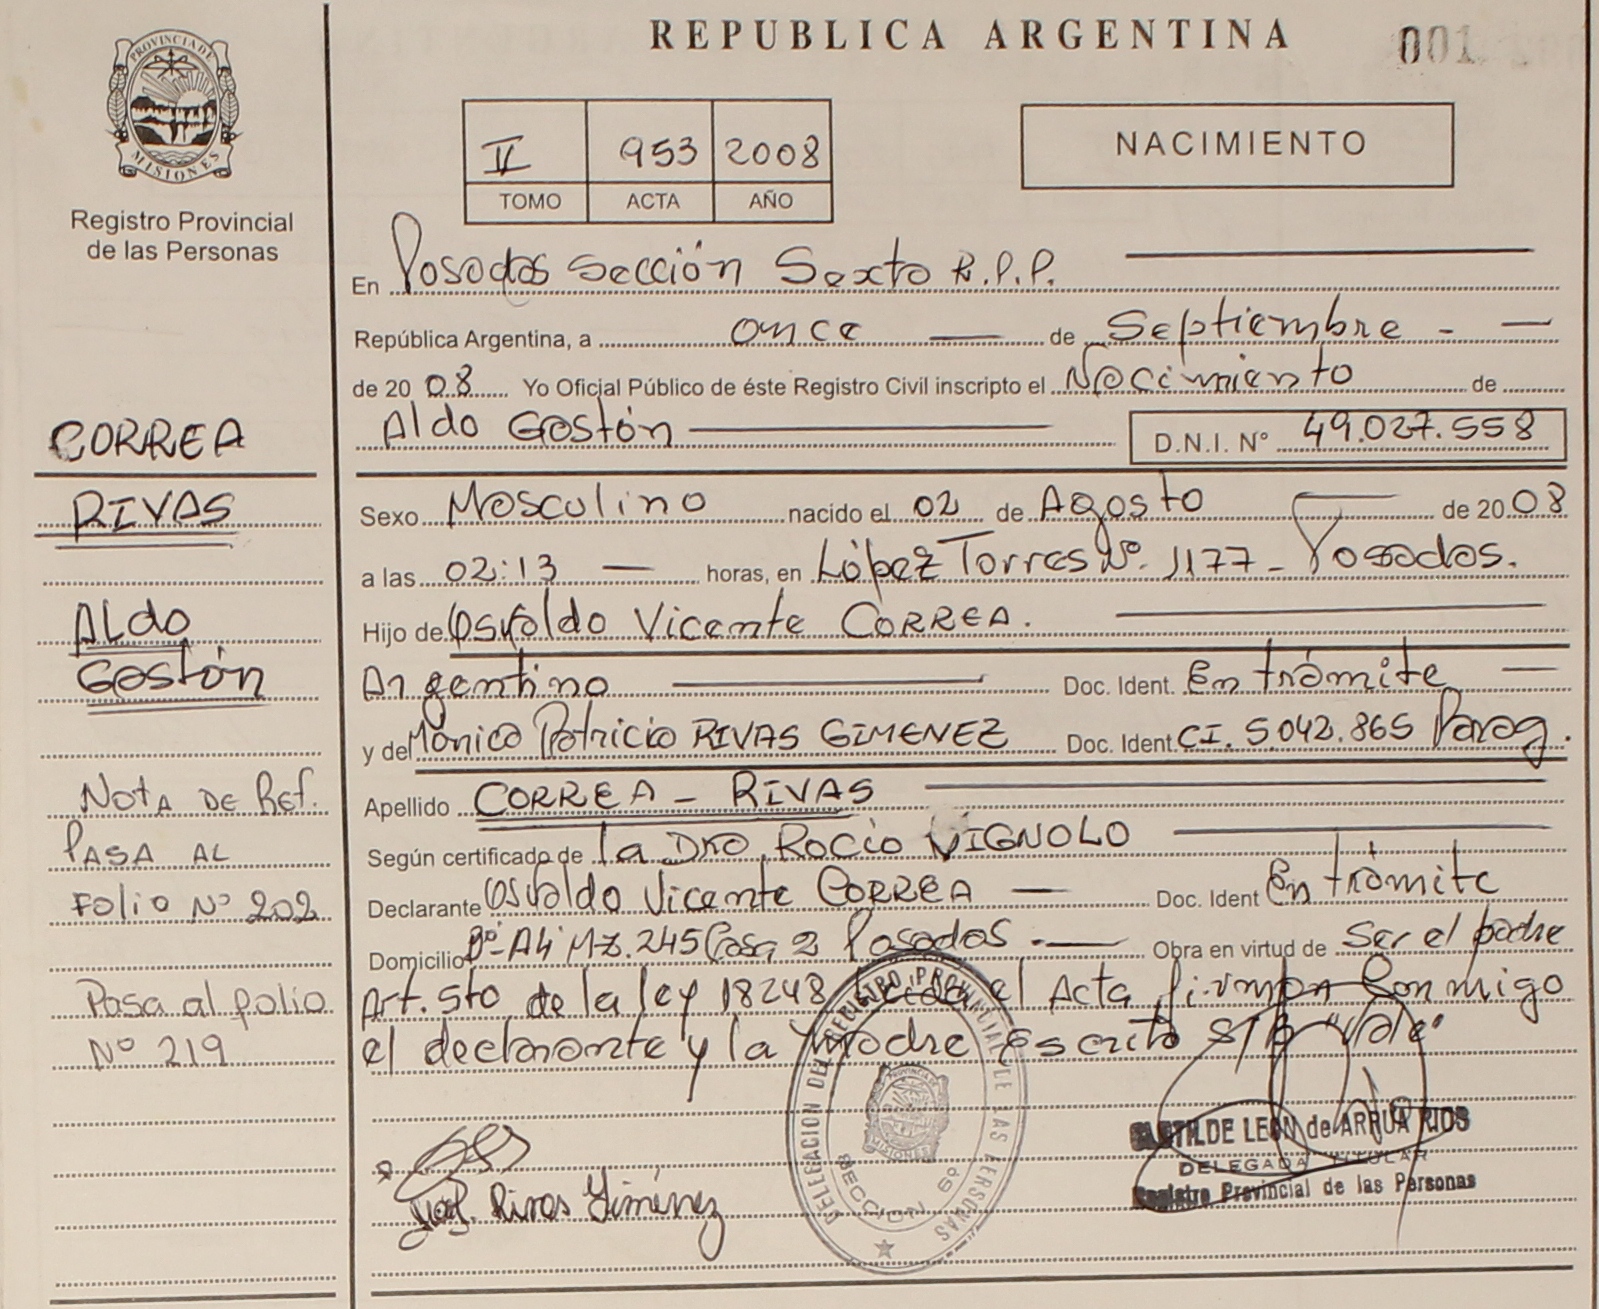 REPUBLICA ARGENTINA
001
PROVINCIA DE
MISIONES
Registro Provincial
de las Personas
II 953 2008
TOMO ACTA AÑO
NACIMIENTO
En Posadas Sección Sexta R.P.P.
República Argentina, a once de Septiembre
de 20 08 Yo Oficial Público de éste Registro Civil inscripto el Nacimiento de
Aldo Gastón D.N.I. Nº 49.027.558
CORREA
RIVAS
Aldo
Gastón
Sexo Masculino nacido el 02 de Agosto de 20 08
a las 02:13 horas, en López Torres Nº. 1177 - Posadas.
Hijo de Osvaldo Vicente CORREA.
Argentino Doc. Ident. En trámite
y de Mónica Patricia RIVAS GIMENEZ Doc. Ident. CI. 5.042.865 Parag.
Apellido CORREA - RIVAS
Según certificado de la Dra Rocío VIGNOLO
Declarante Osvaldo Vicente CORREA Doc. Ident En trámite
Domicilio Bº A4 Mz. 245 Casa 2 Posadas Obra en virtud de Ser el padre
Art. 5to de la ley 18248 Leida el Acta firman Conmigo
el declarante y la madre Escrito S/B "Vale"
Nota de Ref.
Pasa al
Folio Nº 202
Pasa al folio
Nº 219
Rivas Giménez
DELEGACION DEL REGISTRO PROVINCIAL DE LAS PERSONAS
PROVINCIA DE
MISIONES
SECCION 6º
CLOTILDE LEON de ARRUA RIOS
DELEGADA TITULAR
Registro Provincial de las Personas